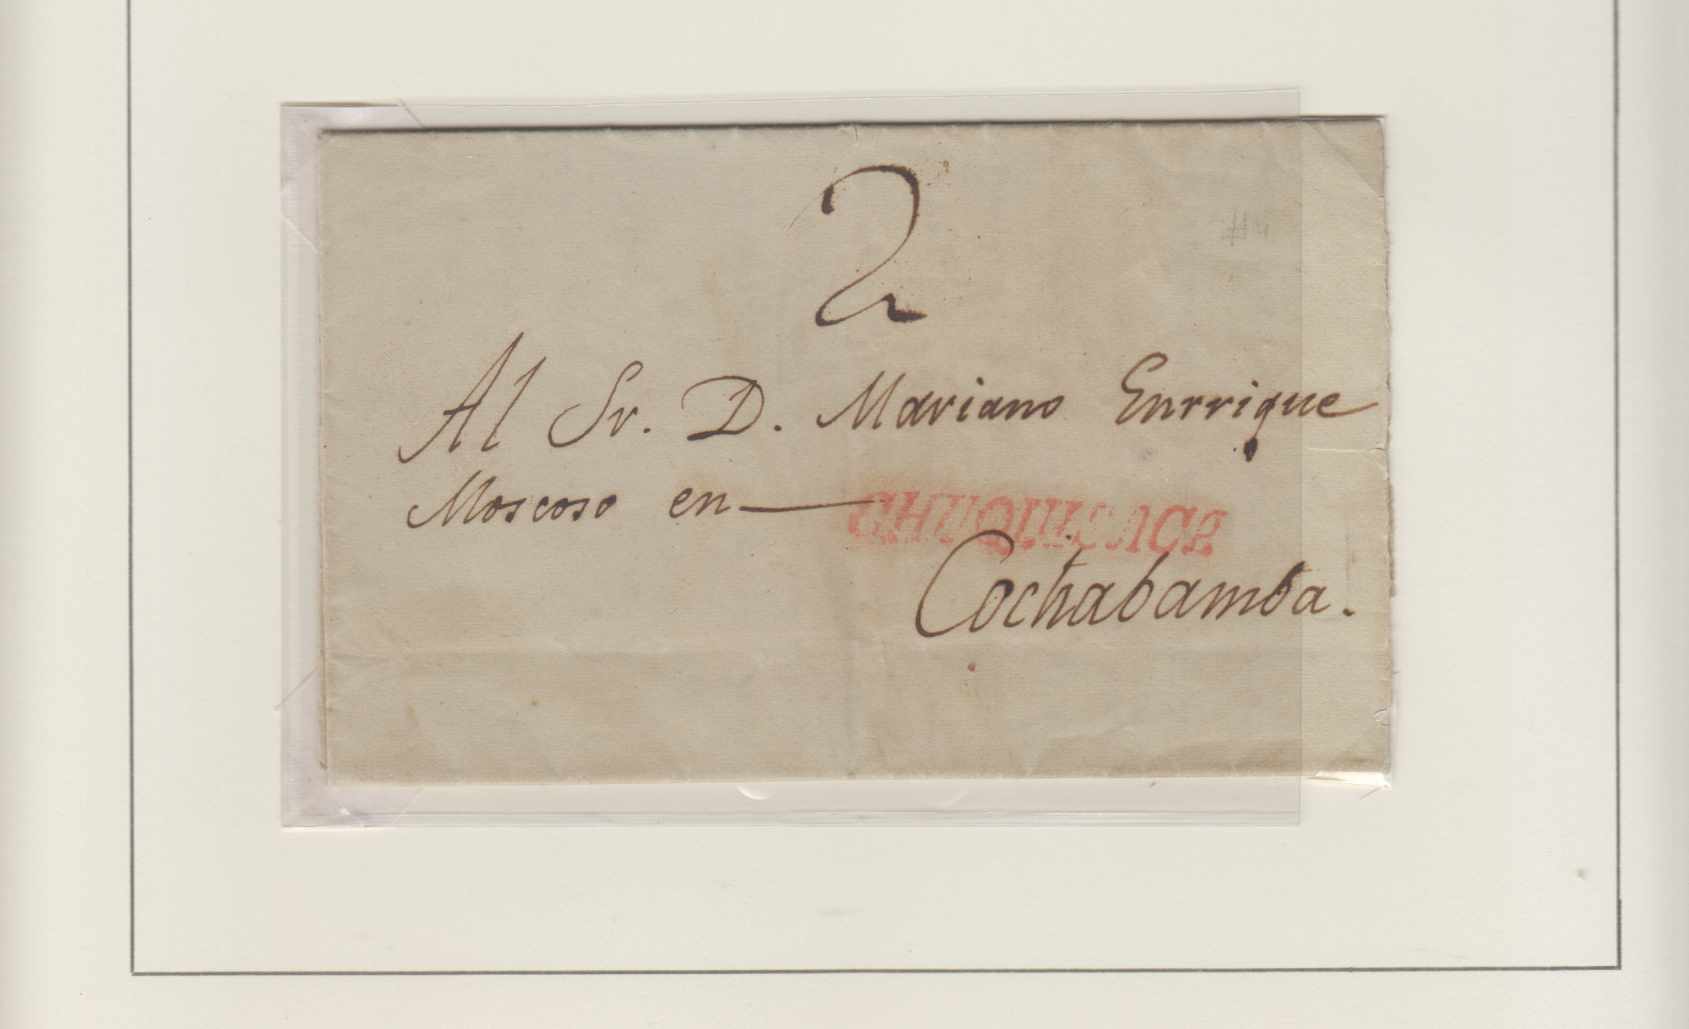 2
Al Sr. D. Mariano Enrrique
Moscoso en
CHUQUISACA
Cochabamba.